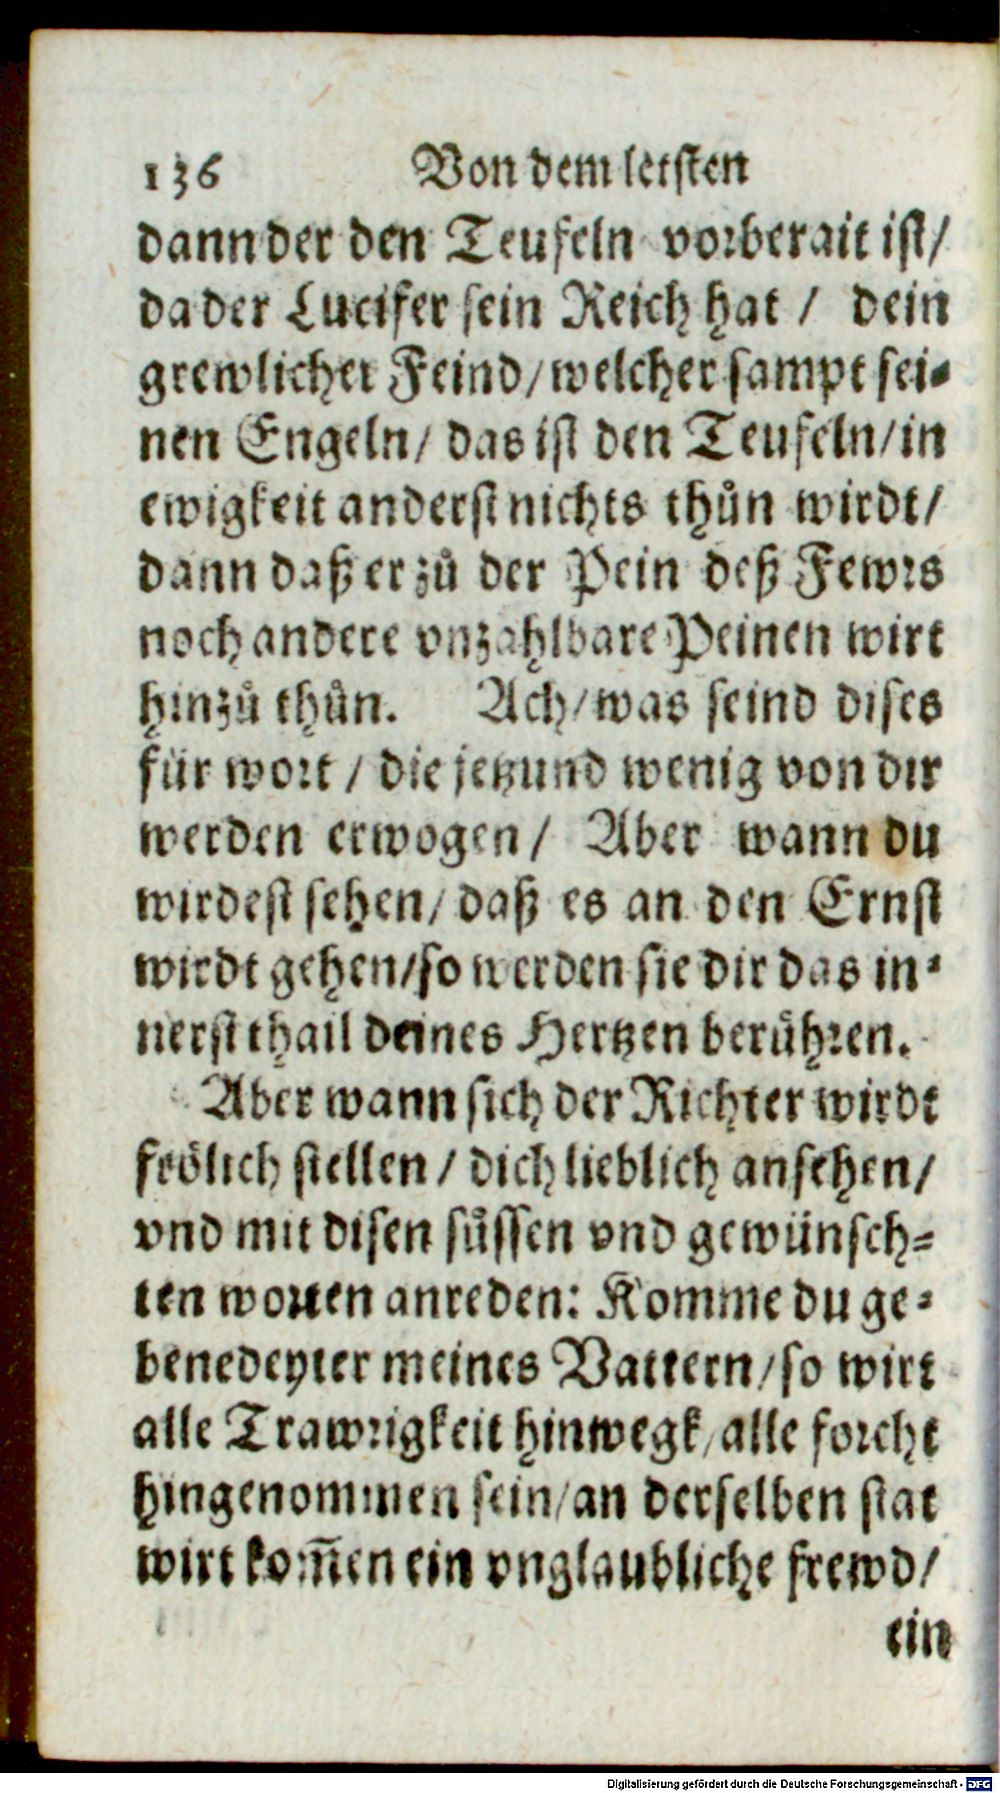 136 Von dem letsten
dann der den Teufeln vorberait ist/
da der Lucifer sein Reich hat / dein
grewlicher Feind/welcher sampt sei-
nen Engeln/ das ist den Teufeln/in
ewigkeit anderst nichts thůn wirdt/
dann daß er zů der Pein deß Fewrs
noch andere vnzahlbare Peinen wirt
hinzů thůn. Ach/was seind dises
für wort / die jetzund wenig von dir
werden erwogen/ Aber wann du
wirdest sehen/ daß es an den Ernst
wirdt gehen/so werden sie dir das in-
nerst thail deines Hertzen berühren.
Aber wann sich der Richter wirdt
frölich stellen / dich lieblich ansehen/
vnd mit disen süssen vnd gewünsch-
ten worten anreden: Komme du ge-
benedeyter meines Vattern/so wirt
alle Trawrigkeit hinwegk/alle forcht
hingenommen sein/an derselben stat
wirt kom̃en ein vnglaubliche frewd/
ein
Digitalisierung gefördert durch die Deutsche Forschungsgemeinschaft - DFG